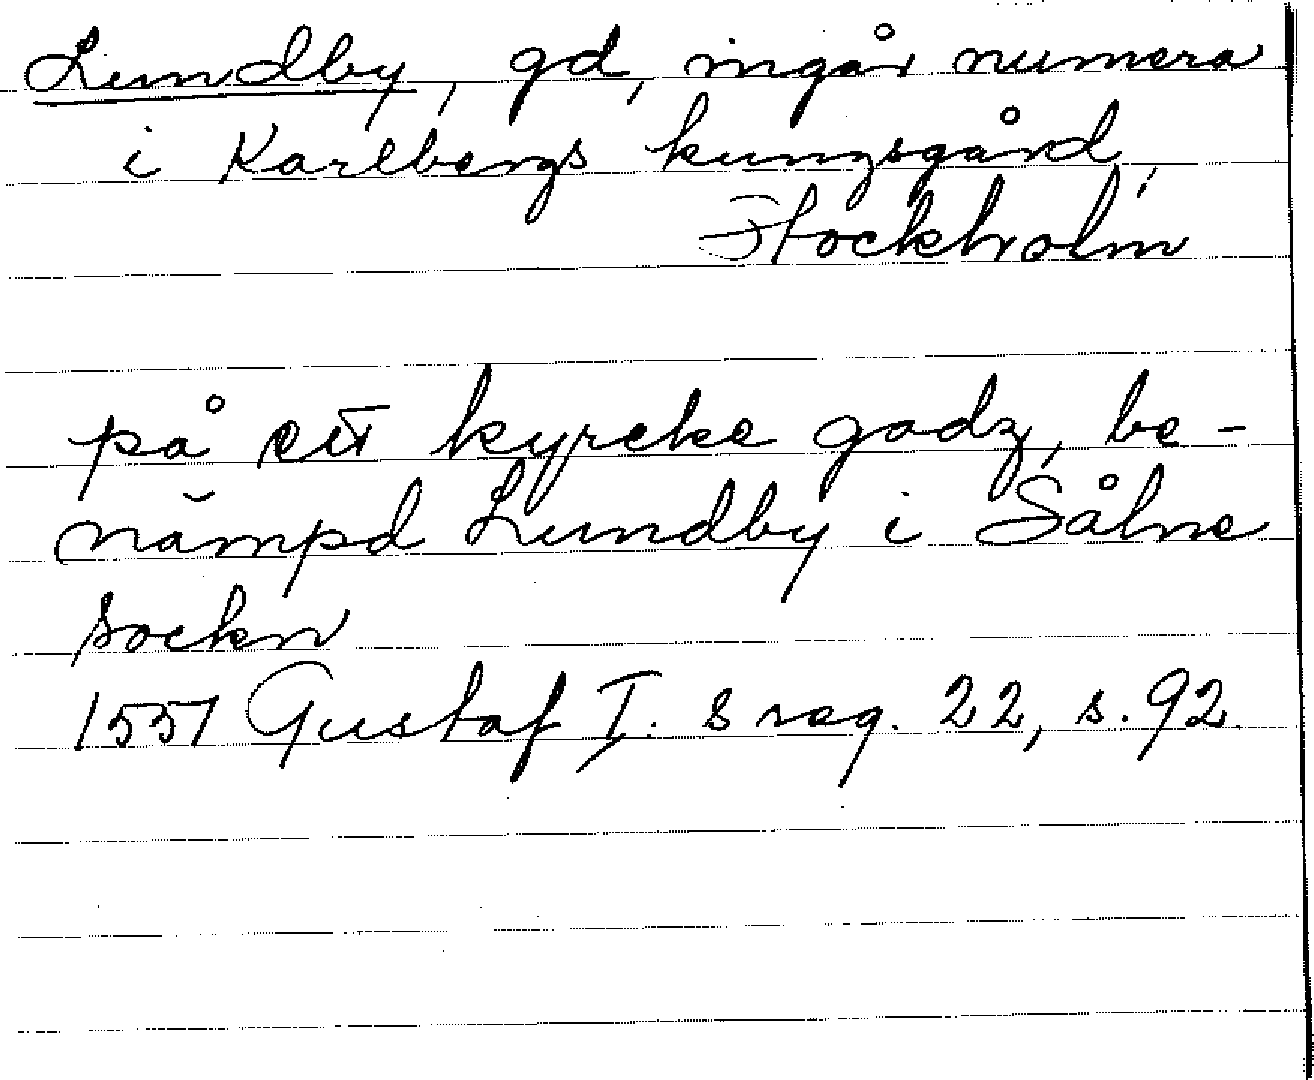 Lundby, gd, ingår numera
i Karlbergs kungsgård,
Stockholm
på ett kyrcke godz, be-
nämpd Lundby i Sålne
sockn
1551 Gustaf I:s reg. 22, s. 92.